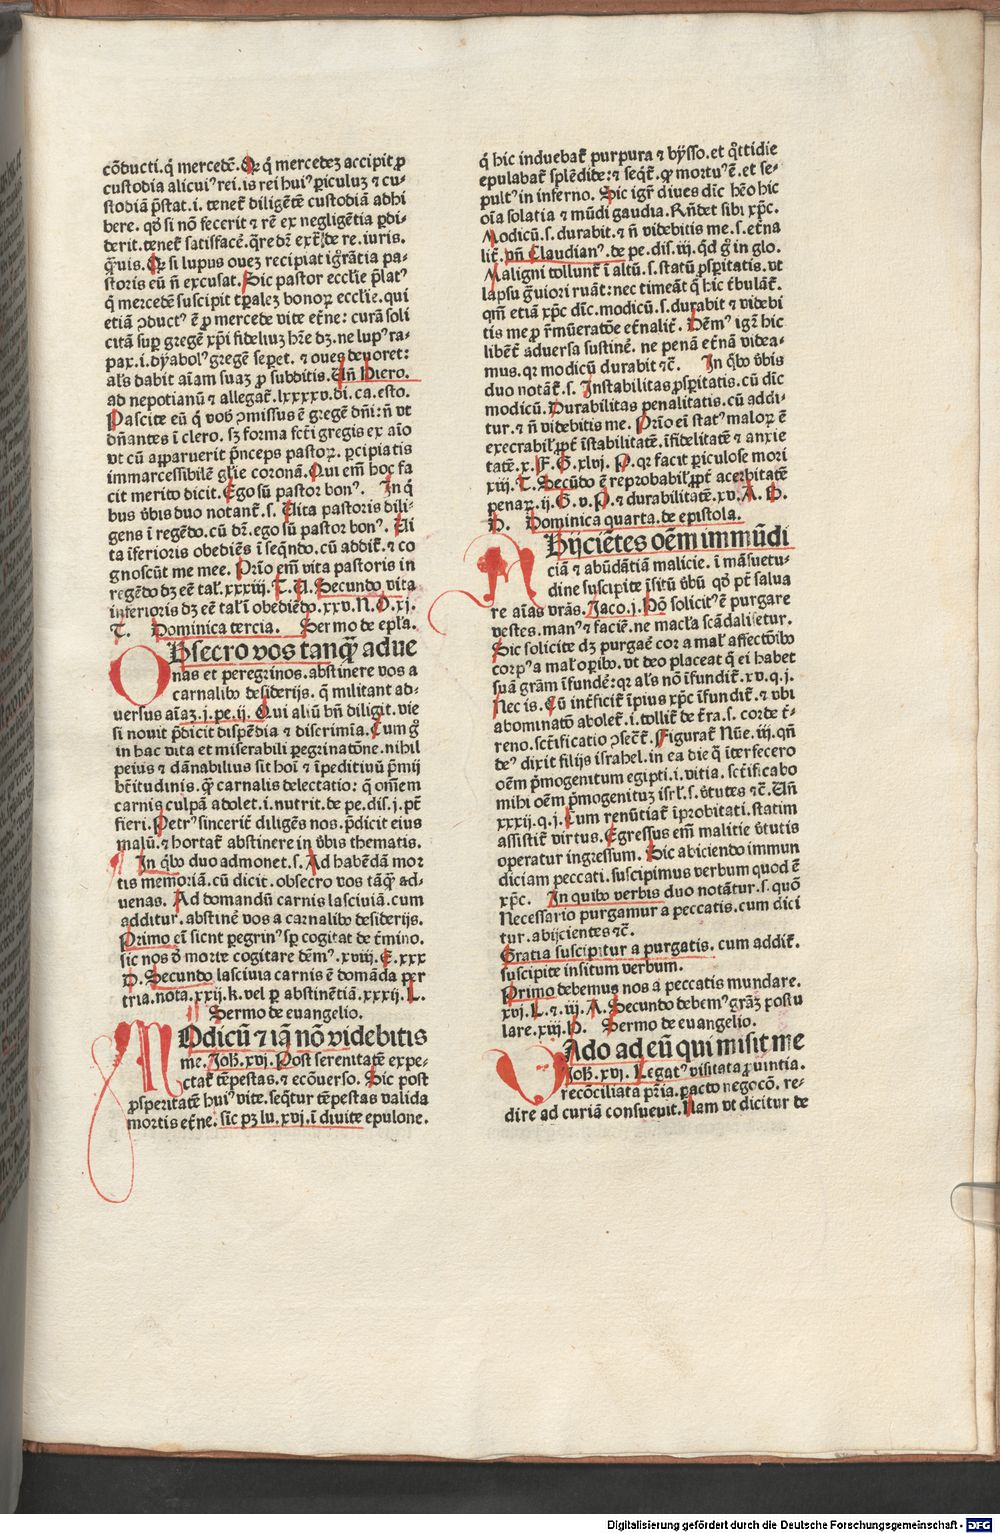 cōducti. q̄ mercedē. Qꝛ q̄ mercedeꝫ accipit ꝓ
custodia alicuiꝰ rei. is rei huiꝰ ꝑiculuꝫ ⁊ cu-
stodiā p̄stat. i. tenet̄ diligētē custodiā adhi
bere. qđ si nō fecerit ⁊ rē ex negligētia ꝑdi-
derit. tenet̄ satisfacē. q̄re dꝫ ext̄. de re. iuris.
q̄uis. Qꝛ si lupus oueꝫ recipiat ignorātia pa-
storis eū n̄ excusat. Sic pastor eccl'ie p̄latꝰ
q̄ mercedē suscipit tꝑaleꝫ bonoꝝ eccl'ie. qui
etiā ꝯductꝰ ē ꝓ mercede vite et̄ne: curā soli
citā suꝑ gregē xp̄i fideliuꝫ hr̄e dꝫ. ne lupꝰ ra-
pax. i. dyabolꝰ gregē seꝑet. ⁊ oues deuoret:
al's dabit aīam suaꝫ ꝓ subditis. Vn̄ Hiero.
ad nepotianū ⁊ allegat̄. lxxxxv. di. ca. esto.
Pascite eū q̄ vob̄ ꝯmissus ē gregē dn̄i: n̄ vt
dn̄antes ī clero. sꝫ forma fct̄i gregis ex aīo
vt cū apparuerit p̄nceps pastoꝝ. ꝑcipiatis
immarcessibilē gl'ie coronā. Qui em̄ hoc fa
cit merito dicit. Ego sū pastor bonꝰ. In q̄
bus v̄bis duo notant̄. s. Elita pastoris dili-
gens ī regēdo. cū dꝫ. ego sū pastor bonꝰ. Eli
ta īferioris obediēs ī seq̄ndo. cū addit̄. ⁊ co
gnoscūt me mee. Prīo em̄ vita pastoris in
regēdo dꝫ eē tal'. xxxiij. T. U. Secundo vita
inferioris dꝫ eē tal' ī obediēdo. xxv. N. O. xj.
T. Dominica tercia. Sermo de ep̄la.
OBsecro vos tanq̄ꝫ adue
nas et peregrinos. abstinere vos a
carnalibꝰ desiderijs. q̄ militant ad-
uersus aīaꝫ. j. pe. ij. Qui aliū bn̄ diligit. vie
si nouit p̄dicit dispēdia ⁊ discrimīa. Cum gͦ
in hac vita et miserabili ꝑegrinatōne. nihil
peius ⁊ dānabilius sit hoī ⁊ īpeditiuū p̄mij
bt̄itudinis. q̄ꝫ carnalis delectatio: q̄ omēm
carnis culpā adolet. i. nutrit. de pe. dis. j. pt̄
fieri. Petrꝰ sincerit̄ diligēs nos. p̄dicit eius
malū. ⁊ hortat̄ abstinere in v̄bis thematis.
In q̄bꝰ duo admonet. s. Ad habēdā mor
tis memoriā. cū dicit. obsecro vos tāq̄ꝫ ad-
uenas. Ad domandū carnis lasciuiā. cum
additur. abstinē vos a carnalibꝰ desiderijs.
Primo eī sicut ꝑegrinꝰ sꝑ cogitat de t̄mino.
sic nos ꝺ̄ morte cogitare dēmꝰ. xviij. E. xxx
D. Secundo lasciuia carnis ē domāda per
tria. nota. xxij. k. vel ꝑ abstinētiā. xxxij. L.
Sermo de euangelio.
MOdicū ⁊ iā nō videbitis
me. Joh̄. xvj. Post serenitatē expe-
ctat̄ tēpestas. ⁊ ecōuerso. Sic post
ꝓsperitatē huiꝰ vite. seq̄tur tēpestas valida
mortis et̄ne. sic pꝫ lu. xvj. ī diuite epulone.
q̄ hic induebat̄ purpura ⁊ bysso. et q̄ttidie
epulabat̄ splēdide: ⁊ seqt̄. qꝙ mortuꝰ ē. et se-
pultꝰ in inferno. Sic igr̄ diues dīc hēo hic
oīa solatia ⁊ mūdi gaudia. Rn̄det sibi xp̄c.
Modicū. s. durabit. ⁊ n̄ videbitis me. s. et̄na
lit̄. vn̄ Claudianꝰ. de pe. dis. iij. q̄d gͦ in glo.
Maligni tollunt̄ ī altū. s. statū ꝓsꝑitatis. vt
lapsu ḡuiori ruāt: nec timeāt q̄ hic t̄bulāt̄.
qm̄ etiā xp̄c dīc. modicū. s. durabit ⁊ videbi
tis me ꝓ r̄mūeratōe et̄nalit̄. Dēmꝰ igr̄ hic
libēt̄ aduersa sustinē. ne penā et̄nā videa-
mus. qꝛ modicū durabit ⁊c̄. In q̄bꝰ v̄bis
duo notāt̄. s. Instabilitas ꝓsꝑitatis. cū dīc
modicū. Durabilitas penalitatis. cū addi-
tur. ⁊ n̄ videbitis me. Prīo eī statꝰ maloꝝ ē
execrabil' ꝓpt̄ īstabilitatē. īfidelitatē ⁊ anxie
tatē. x. F. G. xlvj. P. qꝛ facit ꝑiculose mori
xiij. T. Secūdo ē reprobabil' ꝓpt̄ acerbitatē
penaꝝ. ij. G. v. P. ⁊ durabilitatē. xv. A. B.
D. Dominica quarta. de epistola.
ABijciētes oēm immūdi
ciā ⁊ abūdātiā malicie. ī māsuetu-
dine suscipite īsitū v̄bū qđ pt̄ salua
re aīas vr̄as. Jaco. j. Hō solicitꝰ ē purgare
vestes. manꝰ ⁊ faciē. ne macl'a scādalisetur.
Sic solicite dꝫ purgaē cor a mal' affectōibꝰ
corpꝰ a mal' oꝑibꝰ. vt deo placeat q̄ ei habet
suā grām īfundē: qꝛ al's nō īfundit̄. xv. q. j.
Nec is. Cū int̄ficit̄ īpius xp̄c īfundit̄. ⁊ vbi
abominatō abolet̄. i. tollit̄ de t̄ra. s. corde t̄-
reno. sct̄ificatio ꝯsec̄t̄. Figurat̄ Nūe. iij. qn̄
deꝰ dixit filijs israhel. in ea die q̄ īterfecero
oēm p̄mogenitum egipti. i. vitia. sct̄ificabo
mihi oēm p̄mogenituꝫ isrl'. s. v̄tutes ⁊c̄. Vn̄
xxxij. q. j. Cum renūtiat̄ īprobitati. statim
assistit̄ virtus. Egressus em̄ malitie v̄tutis
operatur ingressum. Sic abiciendo immun
diciam peccati. suscipimus verbum quod ē
xp̄c. In quibꝰ verbis duo notātur. s. quō
Necessario purgamur a peccatis. cum dici
tur. abijcientes ⁊c̄.
Gratia suscipitur a purgatis. cum addit̄.
suscipite insitum verbum.
Primo debemus nos a peccatis mundare.
xvj. L. ⁊. iij. A. Secundo debemꝰ grāꝫ postu
lare. xiij. H. Sermo de euangelio.
VAdo ad eū qui misit me
Joh̄. xvj. Legatꝰ visitata ꝓuintia.
recōciliata pr̄ia. ꝑacto negocō. re-
dire ad curiā consueuit. Nam vt dicitur de
Digitalisierung gefördert durch die Deutsche Forschungsgemeinschaft - DFG